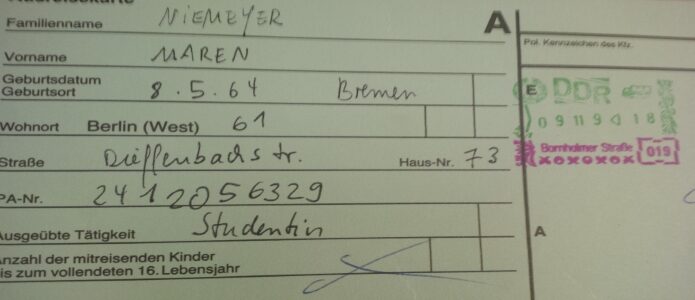 Familienname NIEMEYER
A
Vorname MAREN
Pol. Kennzeichen des Kfz.
Geburtsdatum 8.5.64 Bremen
Geburtsort
E DDR
Wohnort Berlin (West) 61
09 11 9 0 18
Straße Dieffenbachstr. Haus-Nr. 73
Bornholmer Straße 019
xoxoxox
PA-Nr. 2412056329
Ausgeübte Tätigkeit Studentin
A
Anzahl der mitreisenden Kinder
bis zum vollendeten 16. Lebensjahr